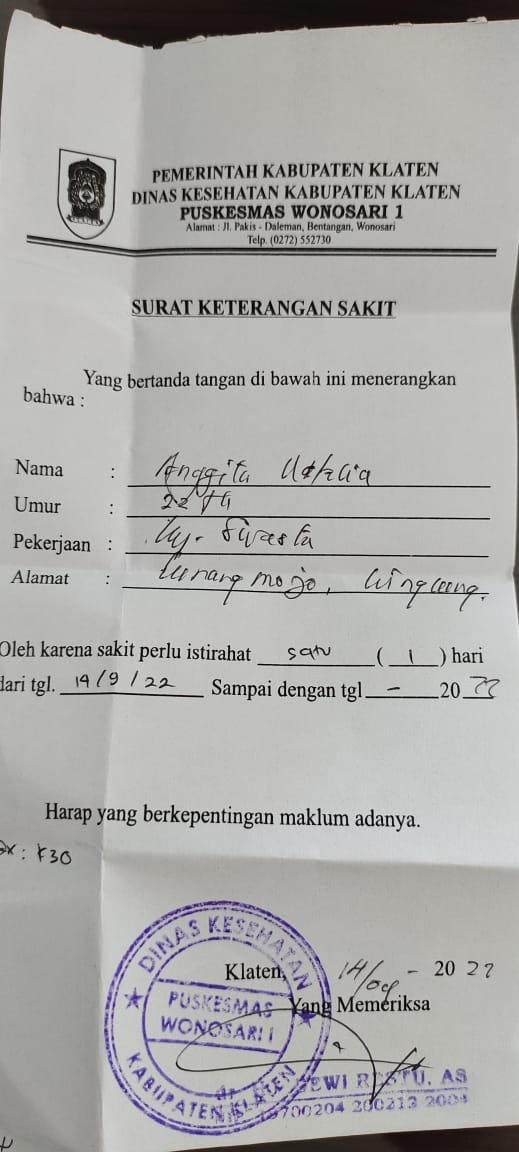 PEMERINTAH KABUPATEN KLATEN
DINAS KESEHATAN KABUPATEN KLATEN
PUSKESMAS WONOSARI 1
Alamat : Jl. Pakis - Daleman, Bentangan, Wonosari
Telp. (0272) 552730
SURAT KETERANGAN SAKIT
Yang bertanda tangan di bawah ini menerangkan
bahwa :
Nama : Anggita
Umur : 22 th
Pekerjaan : Ky. Swasta
Alamat :
Oleh karena sakit perlu istirahat satu ( 1 ) hari
dari tgl. 14/9/22 Sampai dengan tgl - 20 22
Harap yang berkepentingan maklum adanya.
: K30
Klaten, 14/09 - 20 22
Yang Memeriksa
DINAS KESEHATAN
PUSKESMAS
WONOSARI I
KABUPATEN KLATEN
dr. DEWI RESTU. AS
19700204 200212 2004